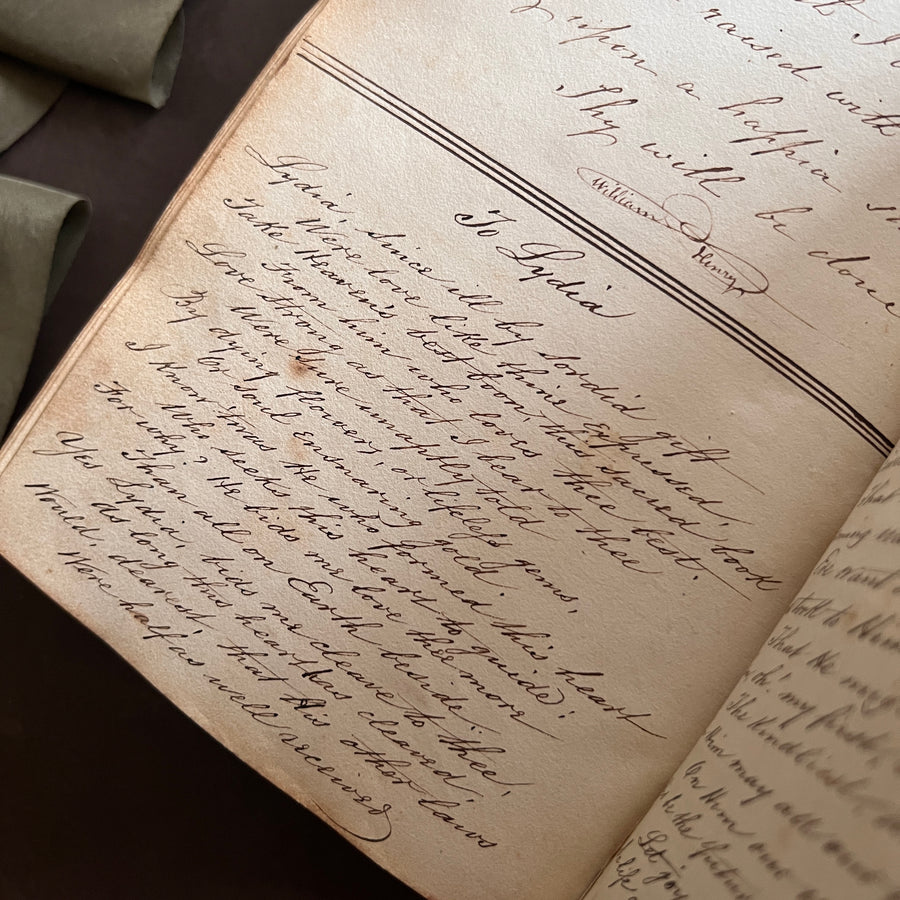 I
raised with
upon a happia
Thy will be done
William Henry
To Lydia
Lydia, since ill by sordid gift
Were love like thine Expressed,
Take Heaven's best boon, this sacred book
From him who loves thee best.
Love strong as that I bear to thee
Were Sure unaptly told
By dying flowers, or lifeless gems,
Or soul Ensnaring gold
I know 'twas He who formed this heart
Who seeks this heart to guide;
For why? He bids me love thee more
Than all on Earth beside
Yes Lydia, bids me cleave to thee,
As long this heart Has cleaved;
Would, dearest, that His other laws
Were half as well received
that
took to
That He may
my first
The Kindliest
him may all
On Him
in the
Let joy
life